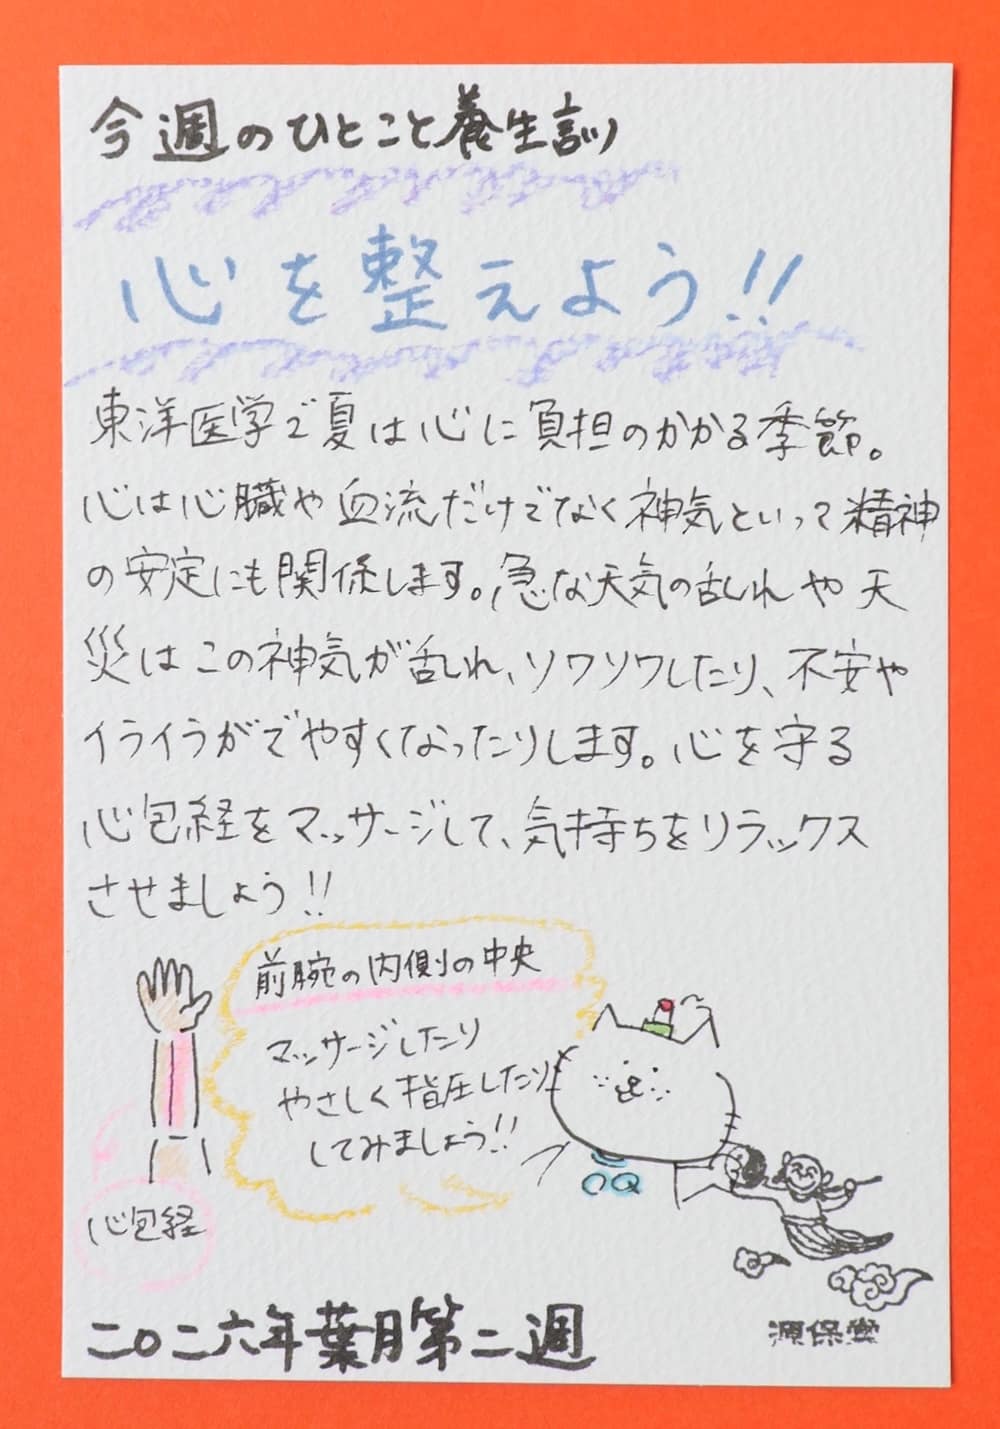 今週のひとこと養生訓
心を整えよう!!
東洋医学で夏は心に負担のかかる季節。
心は心臓や血流だけでなく神気といって精神
の安定にも関係します。急な天気の乱れや天
災はこの神気が乱れ、ソワソワしたり、不安や
イライラがでやすくなったりします。心を守る
心包経をマッサージして、気持ちをリラックス
させましょう!!
前腕の内側の中央
マッサージしたり
やさしく指圧したり
してみましょう!!
心包経
二〇二六年葉月第二週
源保堂